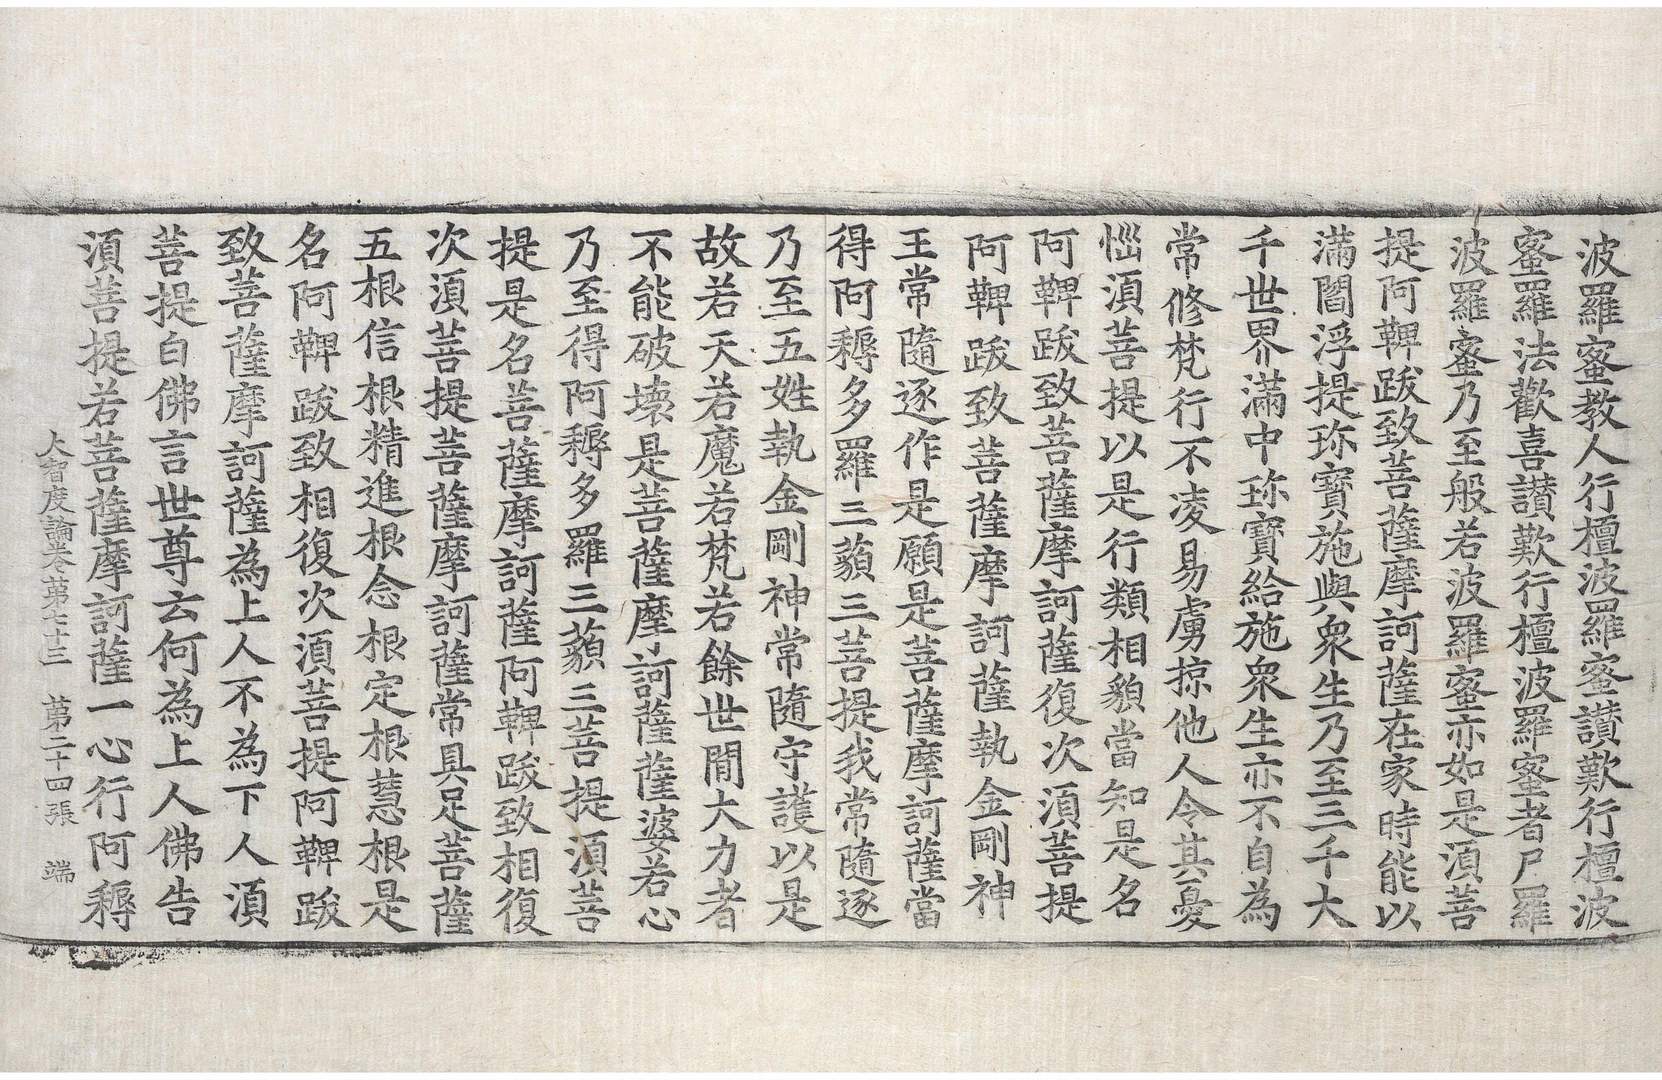 波羅蜜教人行檀波羅蜜讃歎行檀波
羅蜜法歡喜讃歎行檀波羅蜜者尸羅
波羅蜜乃至般若波羅蜜亦如是湏菩
提阿鞞跋致菩薩摩訶薩在家時能以
滿閻浮提珎寶施與衆生乃至三千大
千世界滿中珎寶給施衆生亦不自為
常修梵行不淩易虜掠他人令其憂
惱湏菩提以是行類相貌當知是名
阿鞞跋致菩薩摩訶薩復次湏菩提
阿鞞跋致菩薩摩訶薩執金剛神
王常隨逐作是願是菩薩摩訶薩當
得阿耨多羅三藐三菩提我常隨逐
乃至五姓執金剛神常隨守護以是
故若天若魔若梵若餘世閒大力者
不能破壞是菩薩摩訶薩薩婆若心
乃至得阿耨多羅三藐三菩提湏菩
提是名菩薩摩訶薩阿鞞跋致相復
次湏菩提菩薩摩訶薩常具足菩薩
五根信根精進根念根定根慧根是
名阿鞞跋致相復次湏菩提阿鞞跋
致菩薩摩訶薩為上人不為下人湏
菩提白佛言世尊云何為上人佛告
湏菩提若菩薩摩訶薩一心行阿耨
大智度論卷苐七十三 苐二十四張 端